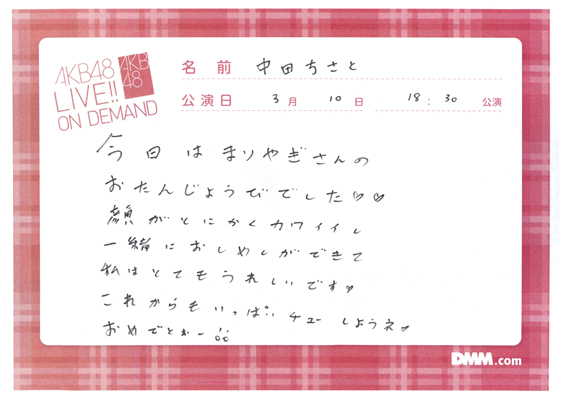 AKB48
LIVE!!
ON DEMAND
AKB
48
名前 中田ちさと
公演日 3月 10日 18:30 公演
今日はまりやぎさんの
おたんじょうびでした♡♡
顔がとにかくカワイイし
一緒におしめしができて
私はとてもうれしいです♡
これからもいっぱいチューしようネ♡
おめでとおー!!
DMM.com